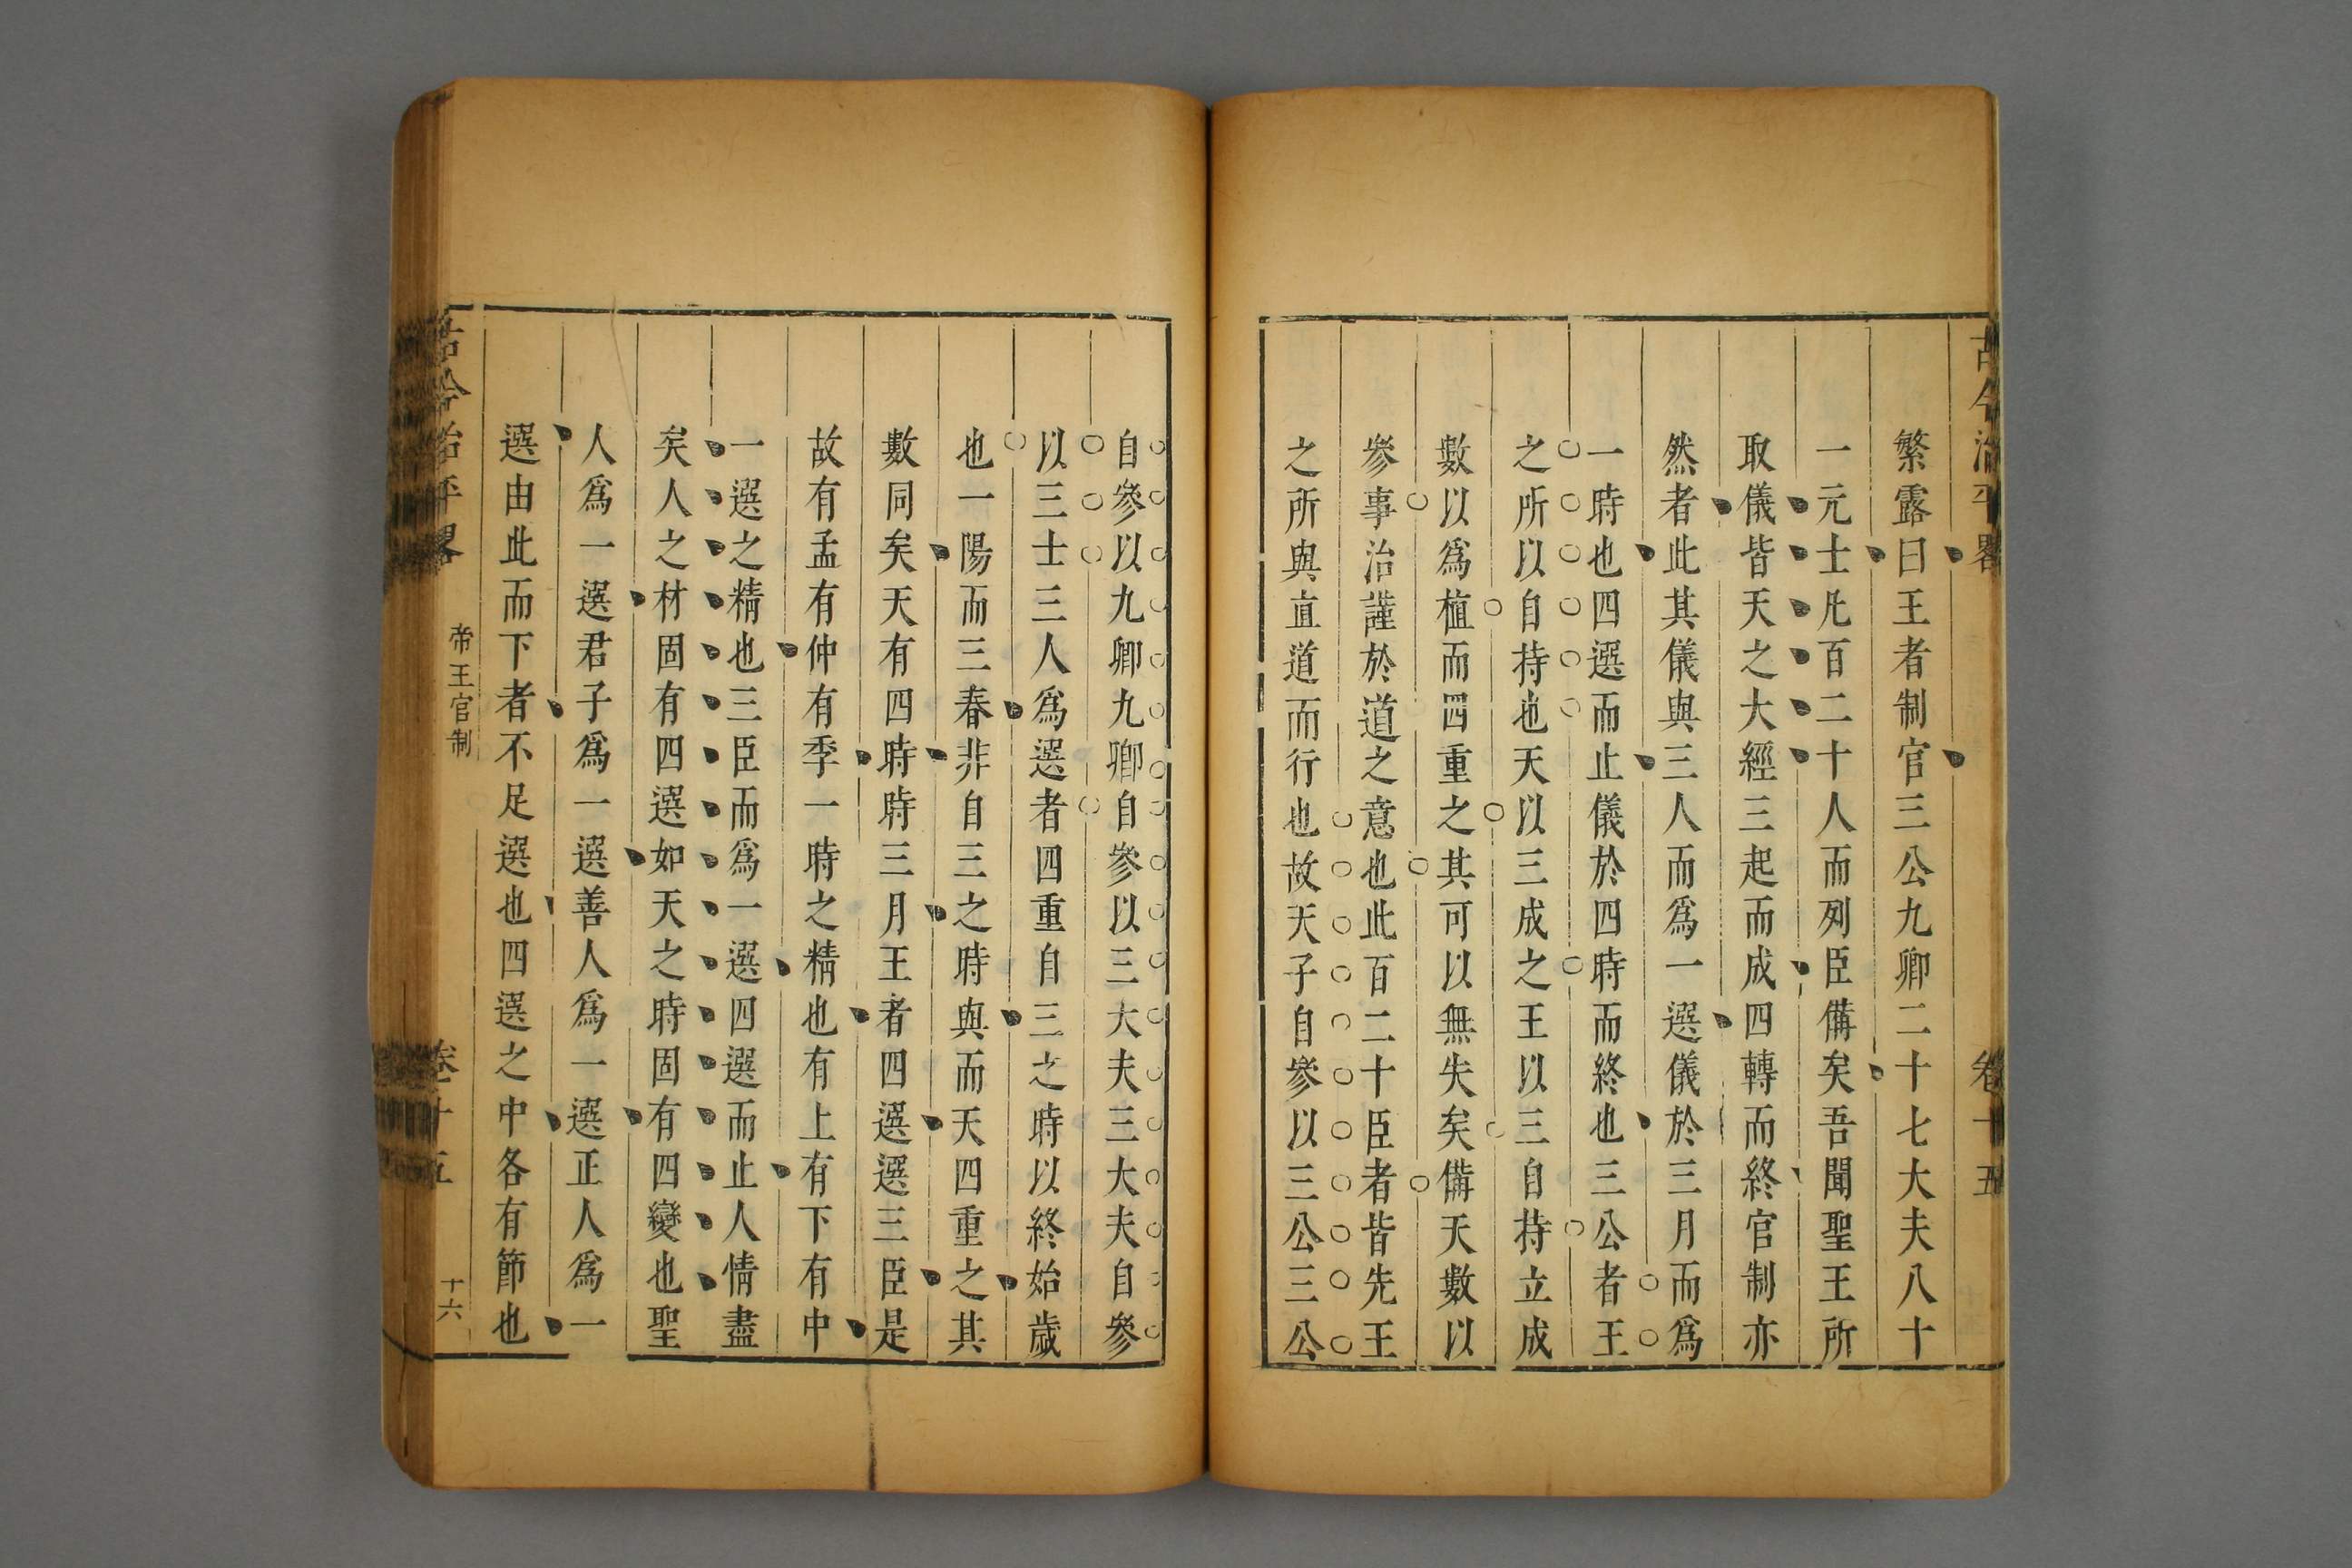 古今治平畧
卷十五
繁露曰王者制官三公九卿二十七大夫八十
一元士凡百二十人而列臣備矣吾聞聖王所
取儀皆天之大經三起而成四轉而終官制亦
然者此其儀與三人而爲一選儀於三月而爲
一時也四選而止儀於四時而終也三公者王
之所以自持也天以三成之王以三自持立成
數以爲植而四重之其可以無失矣備天數以
參事治謹於道之意也此百二十臣者皆先王
之所與直道而行也故天子自參以三公三公
自參以九卿九卿自參以三大夫三大夫自參
以三士三人爲選者四重自三之時以終始歲
也一陽而三春非自三之時與而天四重之其
數同矣天有四時時三月王者四選選三臣是
故有孟有仲有季一時之精也有上有下有中
一選之精也三臣而爲一選四選而止人情盡
矣人之材固有四選如天之時固有四變也聖
人爲一選君子爲一選善人爲一選正人爲一
選由此而下者不足選也四選之中各有節也
古今治平畧
帝王官制
卷十五
十六